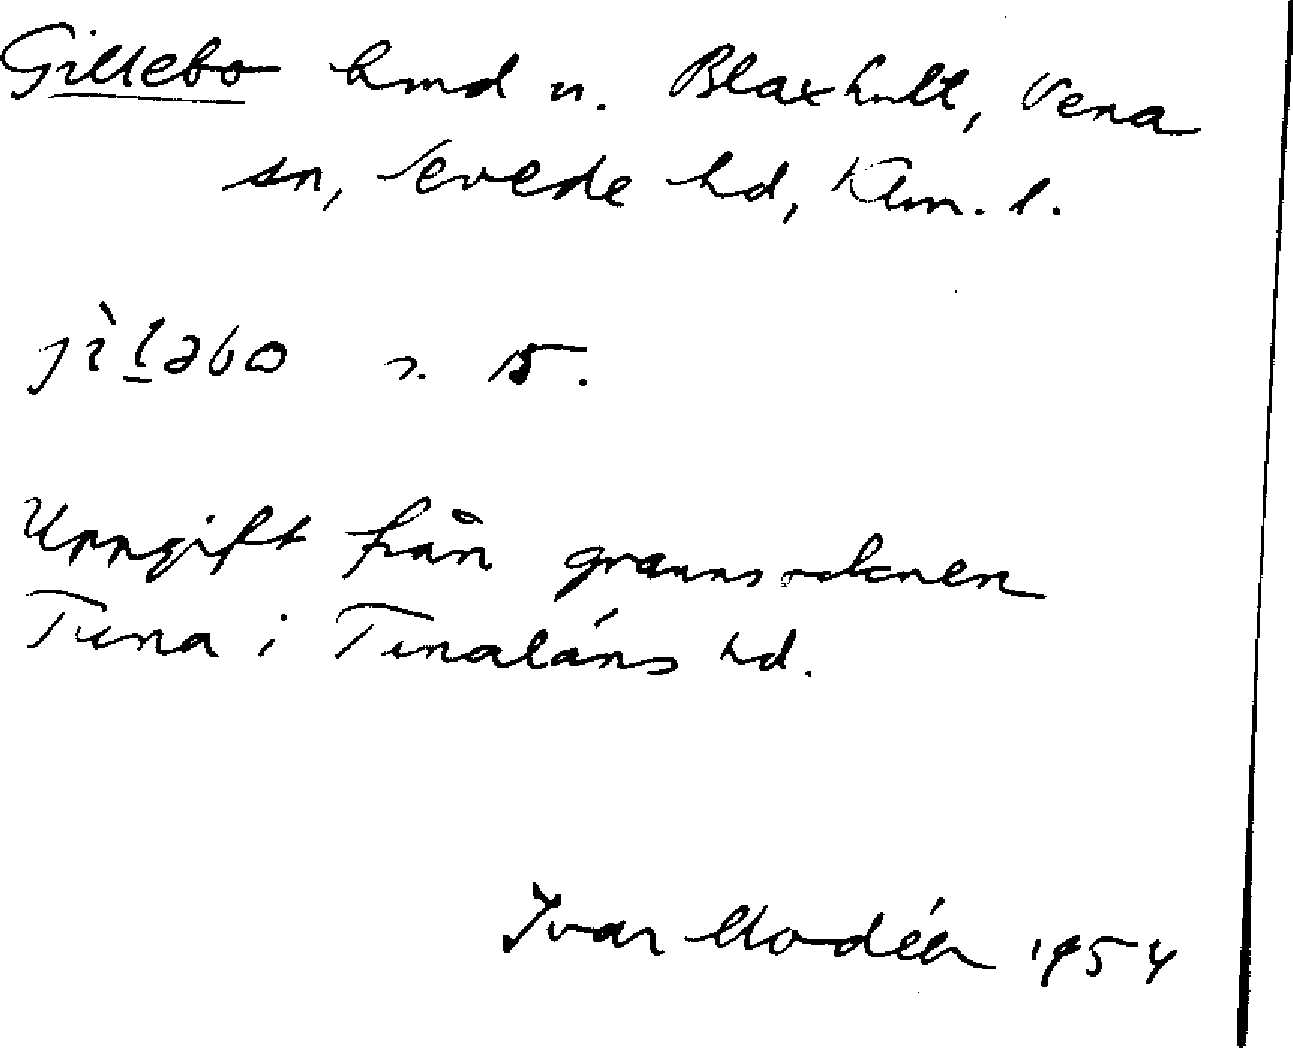 Gillebo hmd u. Blaxhult, Vena
sn, Sevede hd, Kalm. l.
jìl̠əbo
Uppgift från grannsocknen
Tuna i Tunaläns hd.
Ivar Modéer 1954